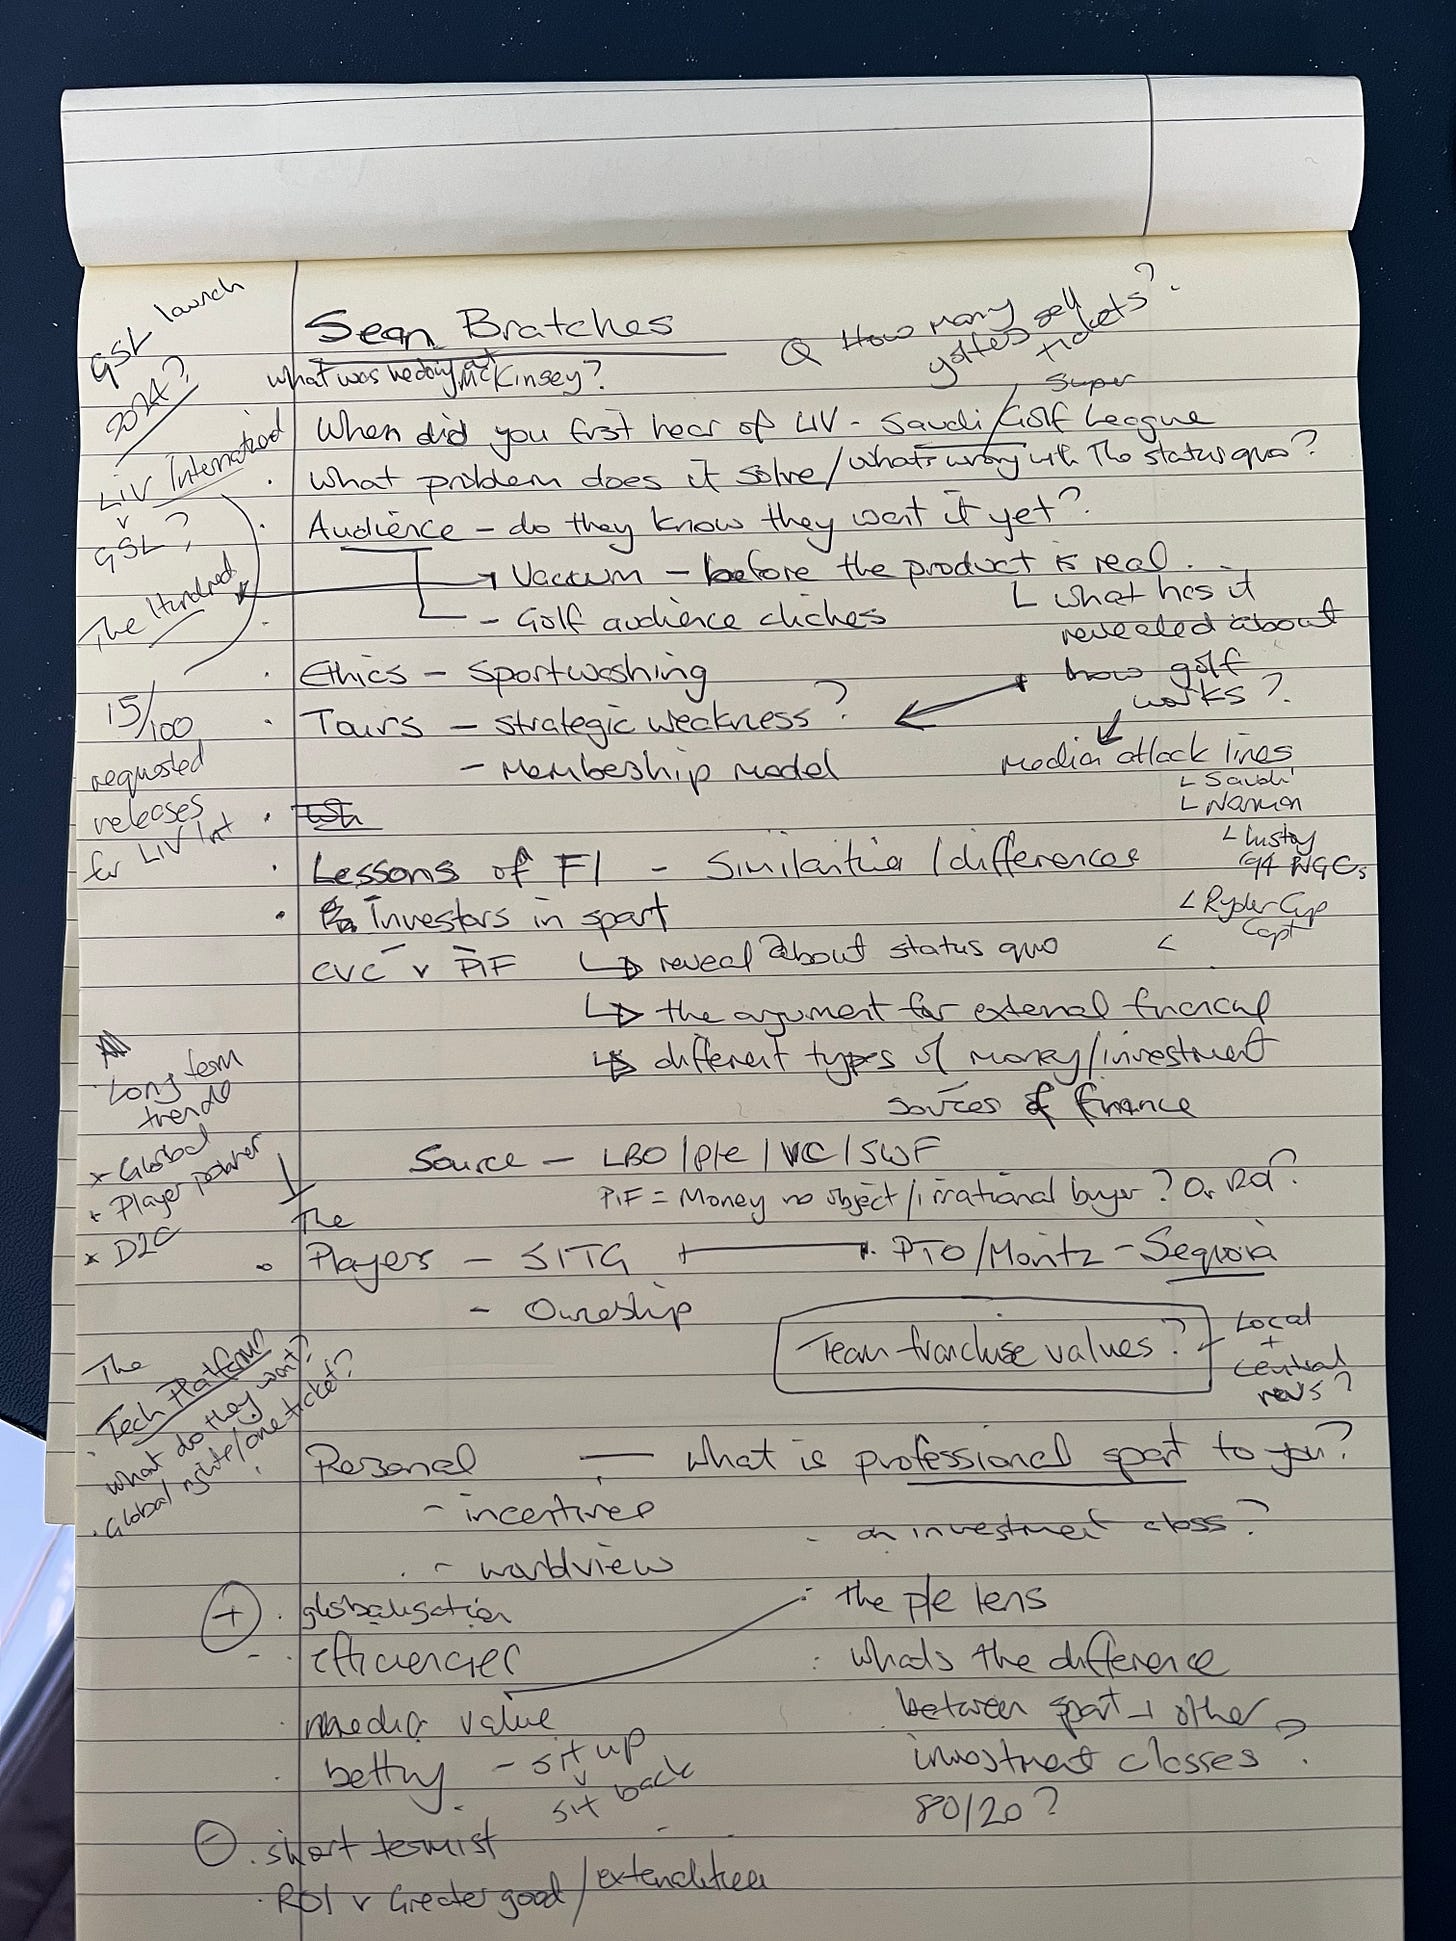 Sean Bratches
Q How many golfers sell tickets?
What was he doing at McKinsey?
When did you first hear of LIV - Saudi/Super Golf League
What problem does it solve/what's wrong with the status quo?
Audience - do they know they want it yet?
Vacuum - before the product is real.
- Golf audience cliches
what has it
revealed about
how golf
works?
Ethics - Sportwashing
Tours - strategic weakness?
- Membeship model
Media attack lines
Saudi
Norman
history
94 NGCs
Ryder Cup
Capt
Lessons of F1 - Similarities/differences
Investors in sport
CVC v PIF
reveal about status quo
the argument for external financial
different types of money/investment
sources of finance
Source - LBO/p/e/VC/SWF
PIF = Money no object/irrational buyer? Or R&D?
The
Players - SITG PTO/Moritz - Sequoia
- Owneship
Team franchise values?
Local
+
Central
revs?
Personal - what is professional sport to you?
- incentives
- an investment class?
- worldview
+ globalisation
the p/e lens
efficiencies
whats the difference
media value
between sport + other
betting - sit up
v
sit back
investment classes?
80/20?
- short termist
ROI v Greater good/externalities
GSL launch
2014?
LIV International
v
GSL?
The Hundred
15/100
requested
releases
for LIV Int
Long term
trends
x Global
x Player power
x D2C
The
Tech Platform
what do they want?
Global rights/one ticket?